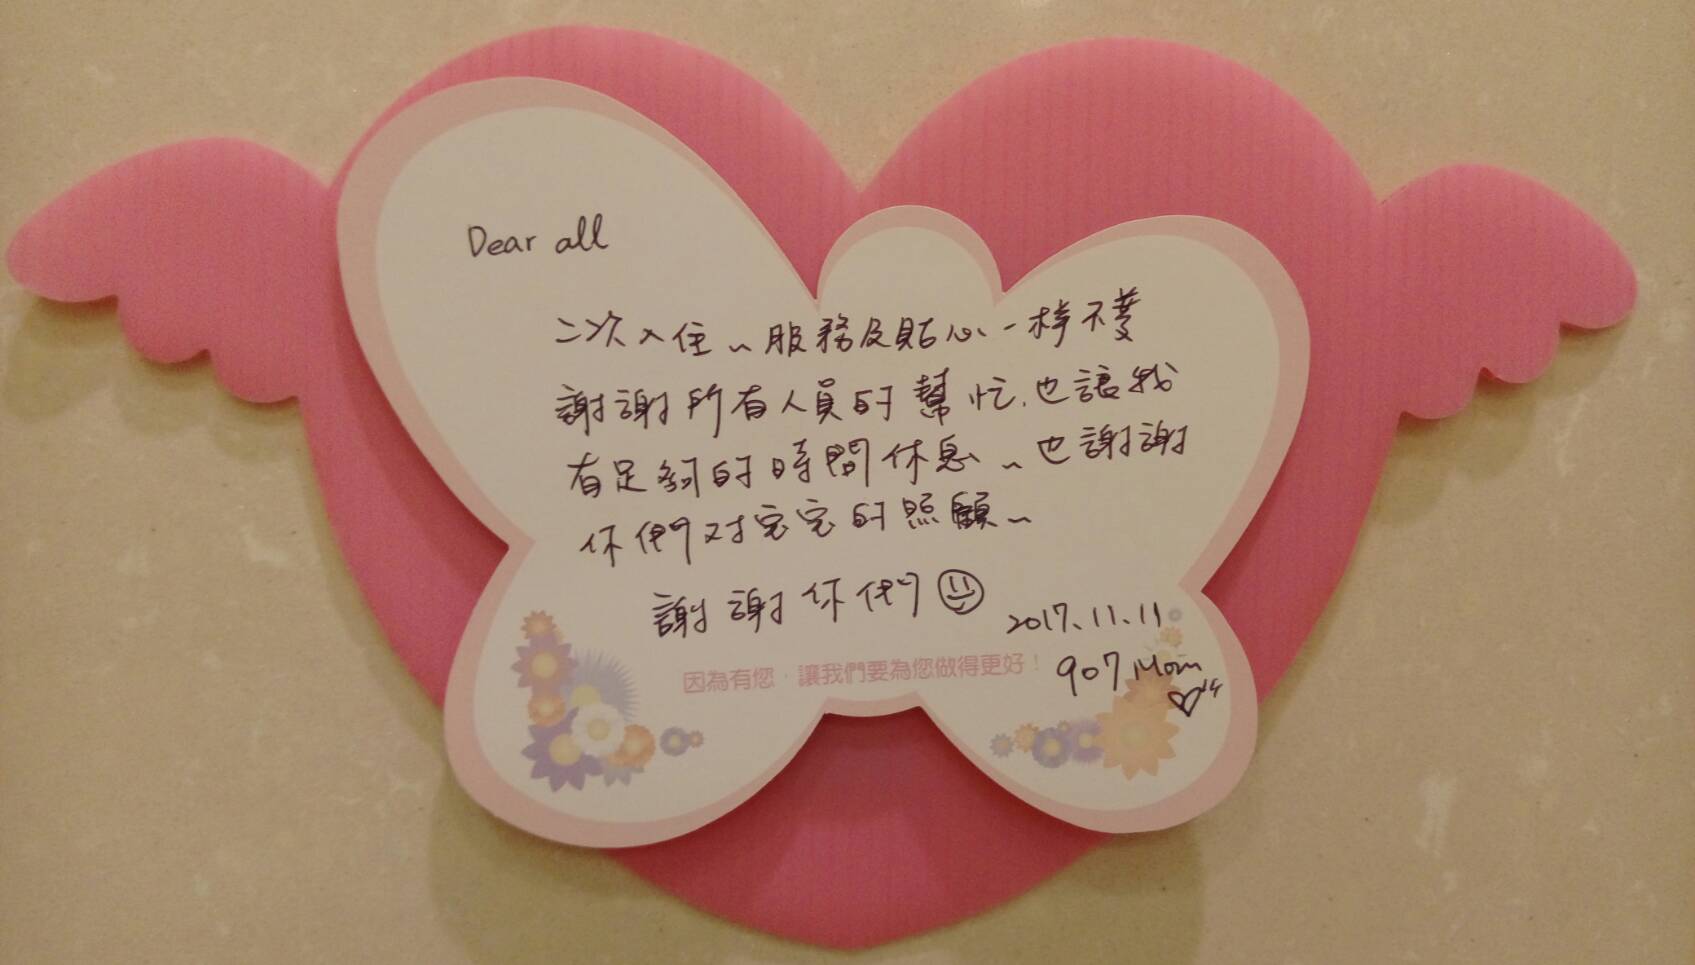 Dear all
二次入住~服務及貼心一樣不變
謝謝所有人員的幫忙,也讓我
有足夠的時間休息~也謝謝
你們对宅宅的照顧~
謝謝你們
2017.11.11
因為有您,讓我們要為您做得更好!
907 Mom